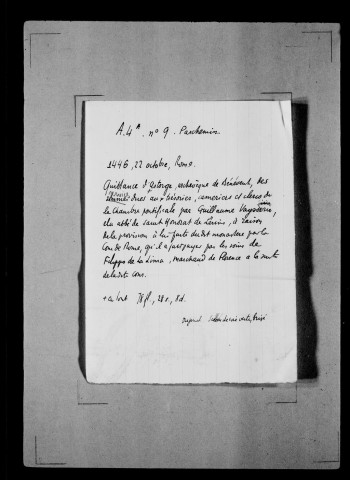 A. 4ᴬ. nº 9. Parchemin
1446, 22 octobre, Rome.
Quittance d'Astorge, archevêque de Bénévent, des
dues aux trésorier, camériers et clercs de
la Chambre pontificale par Guillaume Vayssière,
élu abbé de Saint Honorat de Lérins, à raison
de la provision à lui faite dudit monastère par la
Cour de Rome, qu'il a fait payer par les soins de
Filippo de la Lima, marchand de Florence à la suite
de ladite Cour.
fl., 28 s., 8 d.
Original, scellé de cire verte, brisé